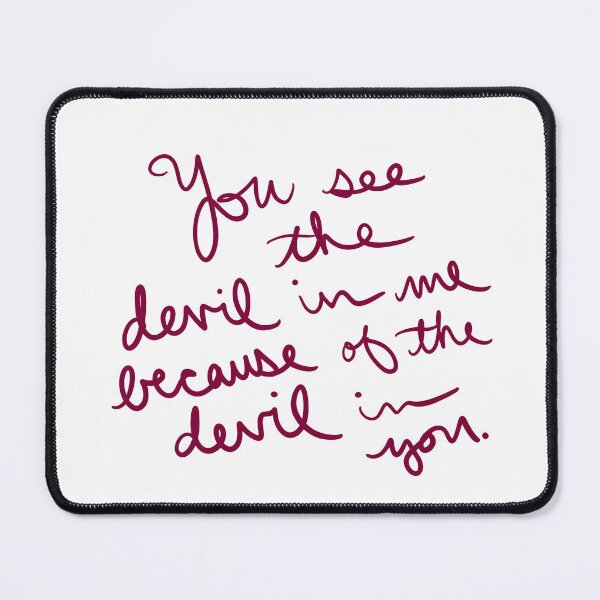 You see
the
devil in me
because of the
devil in
you.